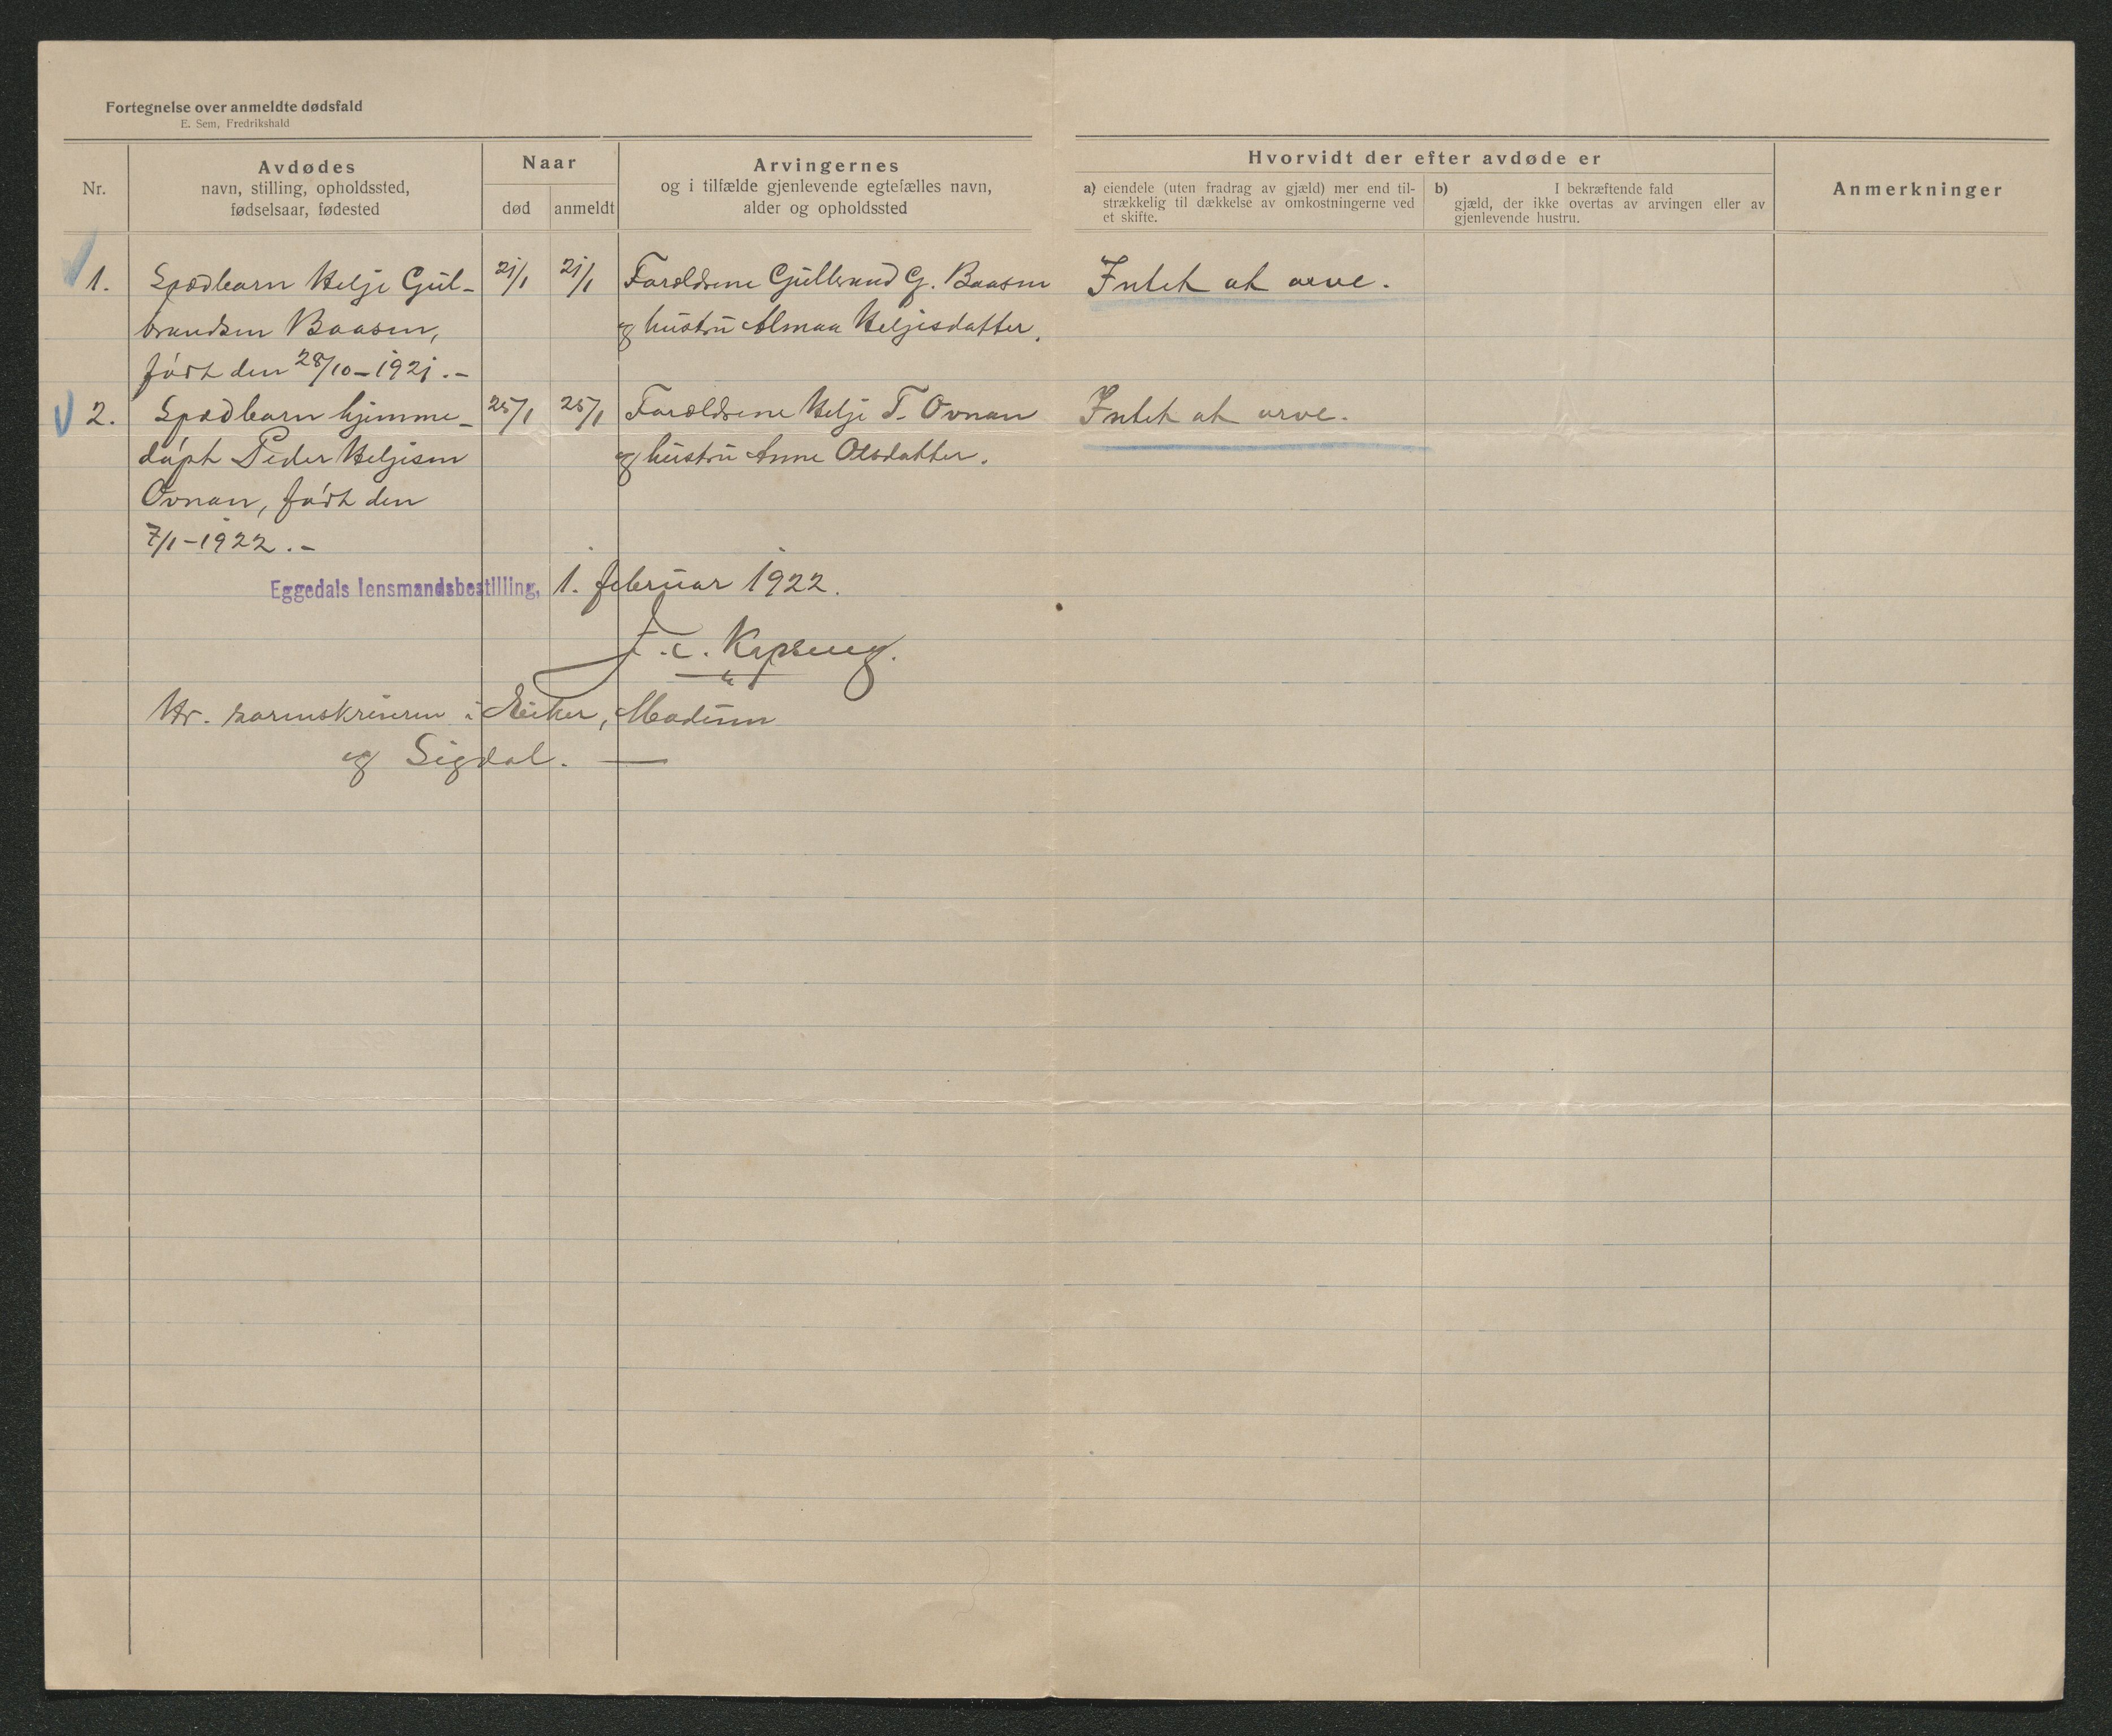 Fortegnelse over anmeldte dødsfald
E. Sem, Fredrikshald
Nr.
Avdødes
navn, stilling, opholdssted,
fødselsaar, fødested
Naar
død
anmeldt
Arvingernes
og i tilfælde gjenlevende egtefælles navn,
alder og opholdssted
Hvorvidt der efter avdøde er
a) eiendele (uten fradrag av gjæld) mer end til-
strækkelig til dækkelse av omkostningerne ved
et skifte.
b) I bekræftende fald
gjæld, der ikke overtas av arvingen eller av
gjenlevende hustru.
Anmerkninger
1. Spædbarn Helje Gul- 21/1 21/1 Forældrene Gulbrand G. Baasen Intet at arve.
brandsen Baasen, og hustru Almaa Heljesdatter.
født den 28/10-1921.-
2. Spædbarn hjemme- 25/1 25/1 Forældrene Helje T. Ovnan Intet at arve.
døpt Peder Heljesen og hustru Anne Olsdatter.
Ovnan, født den
7/1-1922.-
Eggedals lensmandsbestilling, 1. februar 1922.
Hr. sorenskriveren i Eiker, Modum
og Sigdal. —